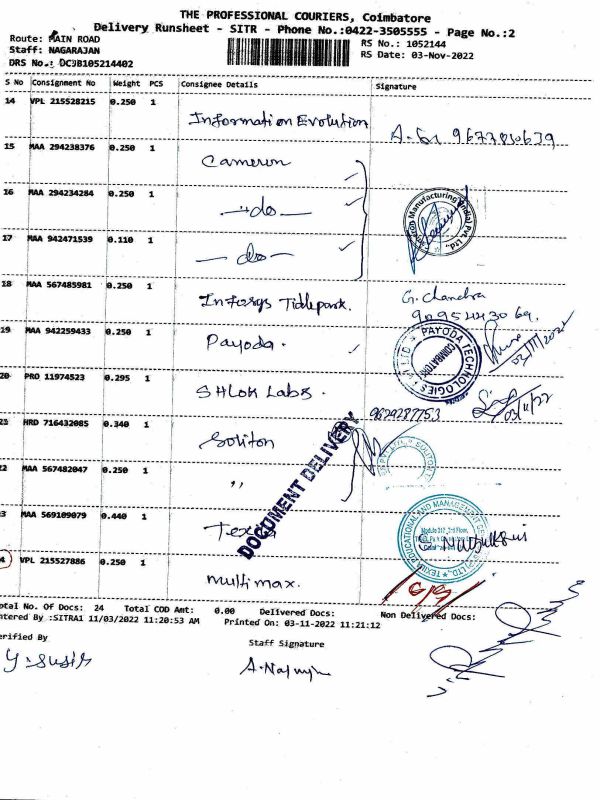 THE PROFESSIONAL COURIERS, Coimbatore
Delivery Runsheet - SITR - Phone No.:0422-3505555 - Page No.:2
Route: MAIN ROAD
RS No.: 1052144
Staff: NAGARAJAN
RS Date: 03-Nov-2022
DRS No.: DCJB105214402
S No Consignment No Weight PCS Consignee Details Signature
14 VPL 215528215 0.250 1 Information Evolution
15 MAA 294238376 0.250 1 Cameron
16 MAA 294234284 0.250 1 — do —
17 MAA 942471539 0.110 1 — do —
18 MAA 567485981 0.250 1 Infosys Tidlepark. G. Chandra
19 MAA 942259433 0.250 1 Payoda. PAYODA TECHNOLOGIES COIMBATORE 03/11/2022
20 PRO 11974523 0.295 1 SHLOK Labs. 9629287753 03/11/22
21 HRD 716432085 0.340 1 Soliton
22 MAA 567482047 0.250 1 "
DOCUMENT DELIVERY
3 MAA 569109079 0.440 1 Texila TEXILA EDUCATIONAL AND MANAGEMENT
4 VPL 215527886 0.250 1 Multimax.
otal No. Of Docs: 24 Total COD Amt: 0.00 Delivered Docs: Non Delivered Docs:
ntered By :SITRA1 11/03/2022 11:20:53 AM Printed On: 03-11-2022 11:21:12
erified By
Staff Signature